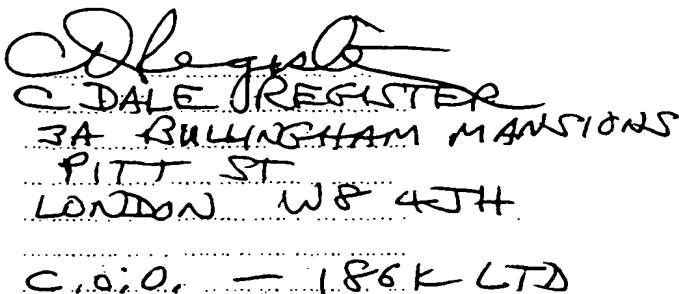 C Dale Register
C DALE REGISTER
3A BULLINGHAM MANSIONS
PITT ST
LONDON W8 4JH
C.O.O. — 186K LTD